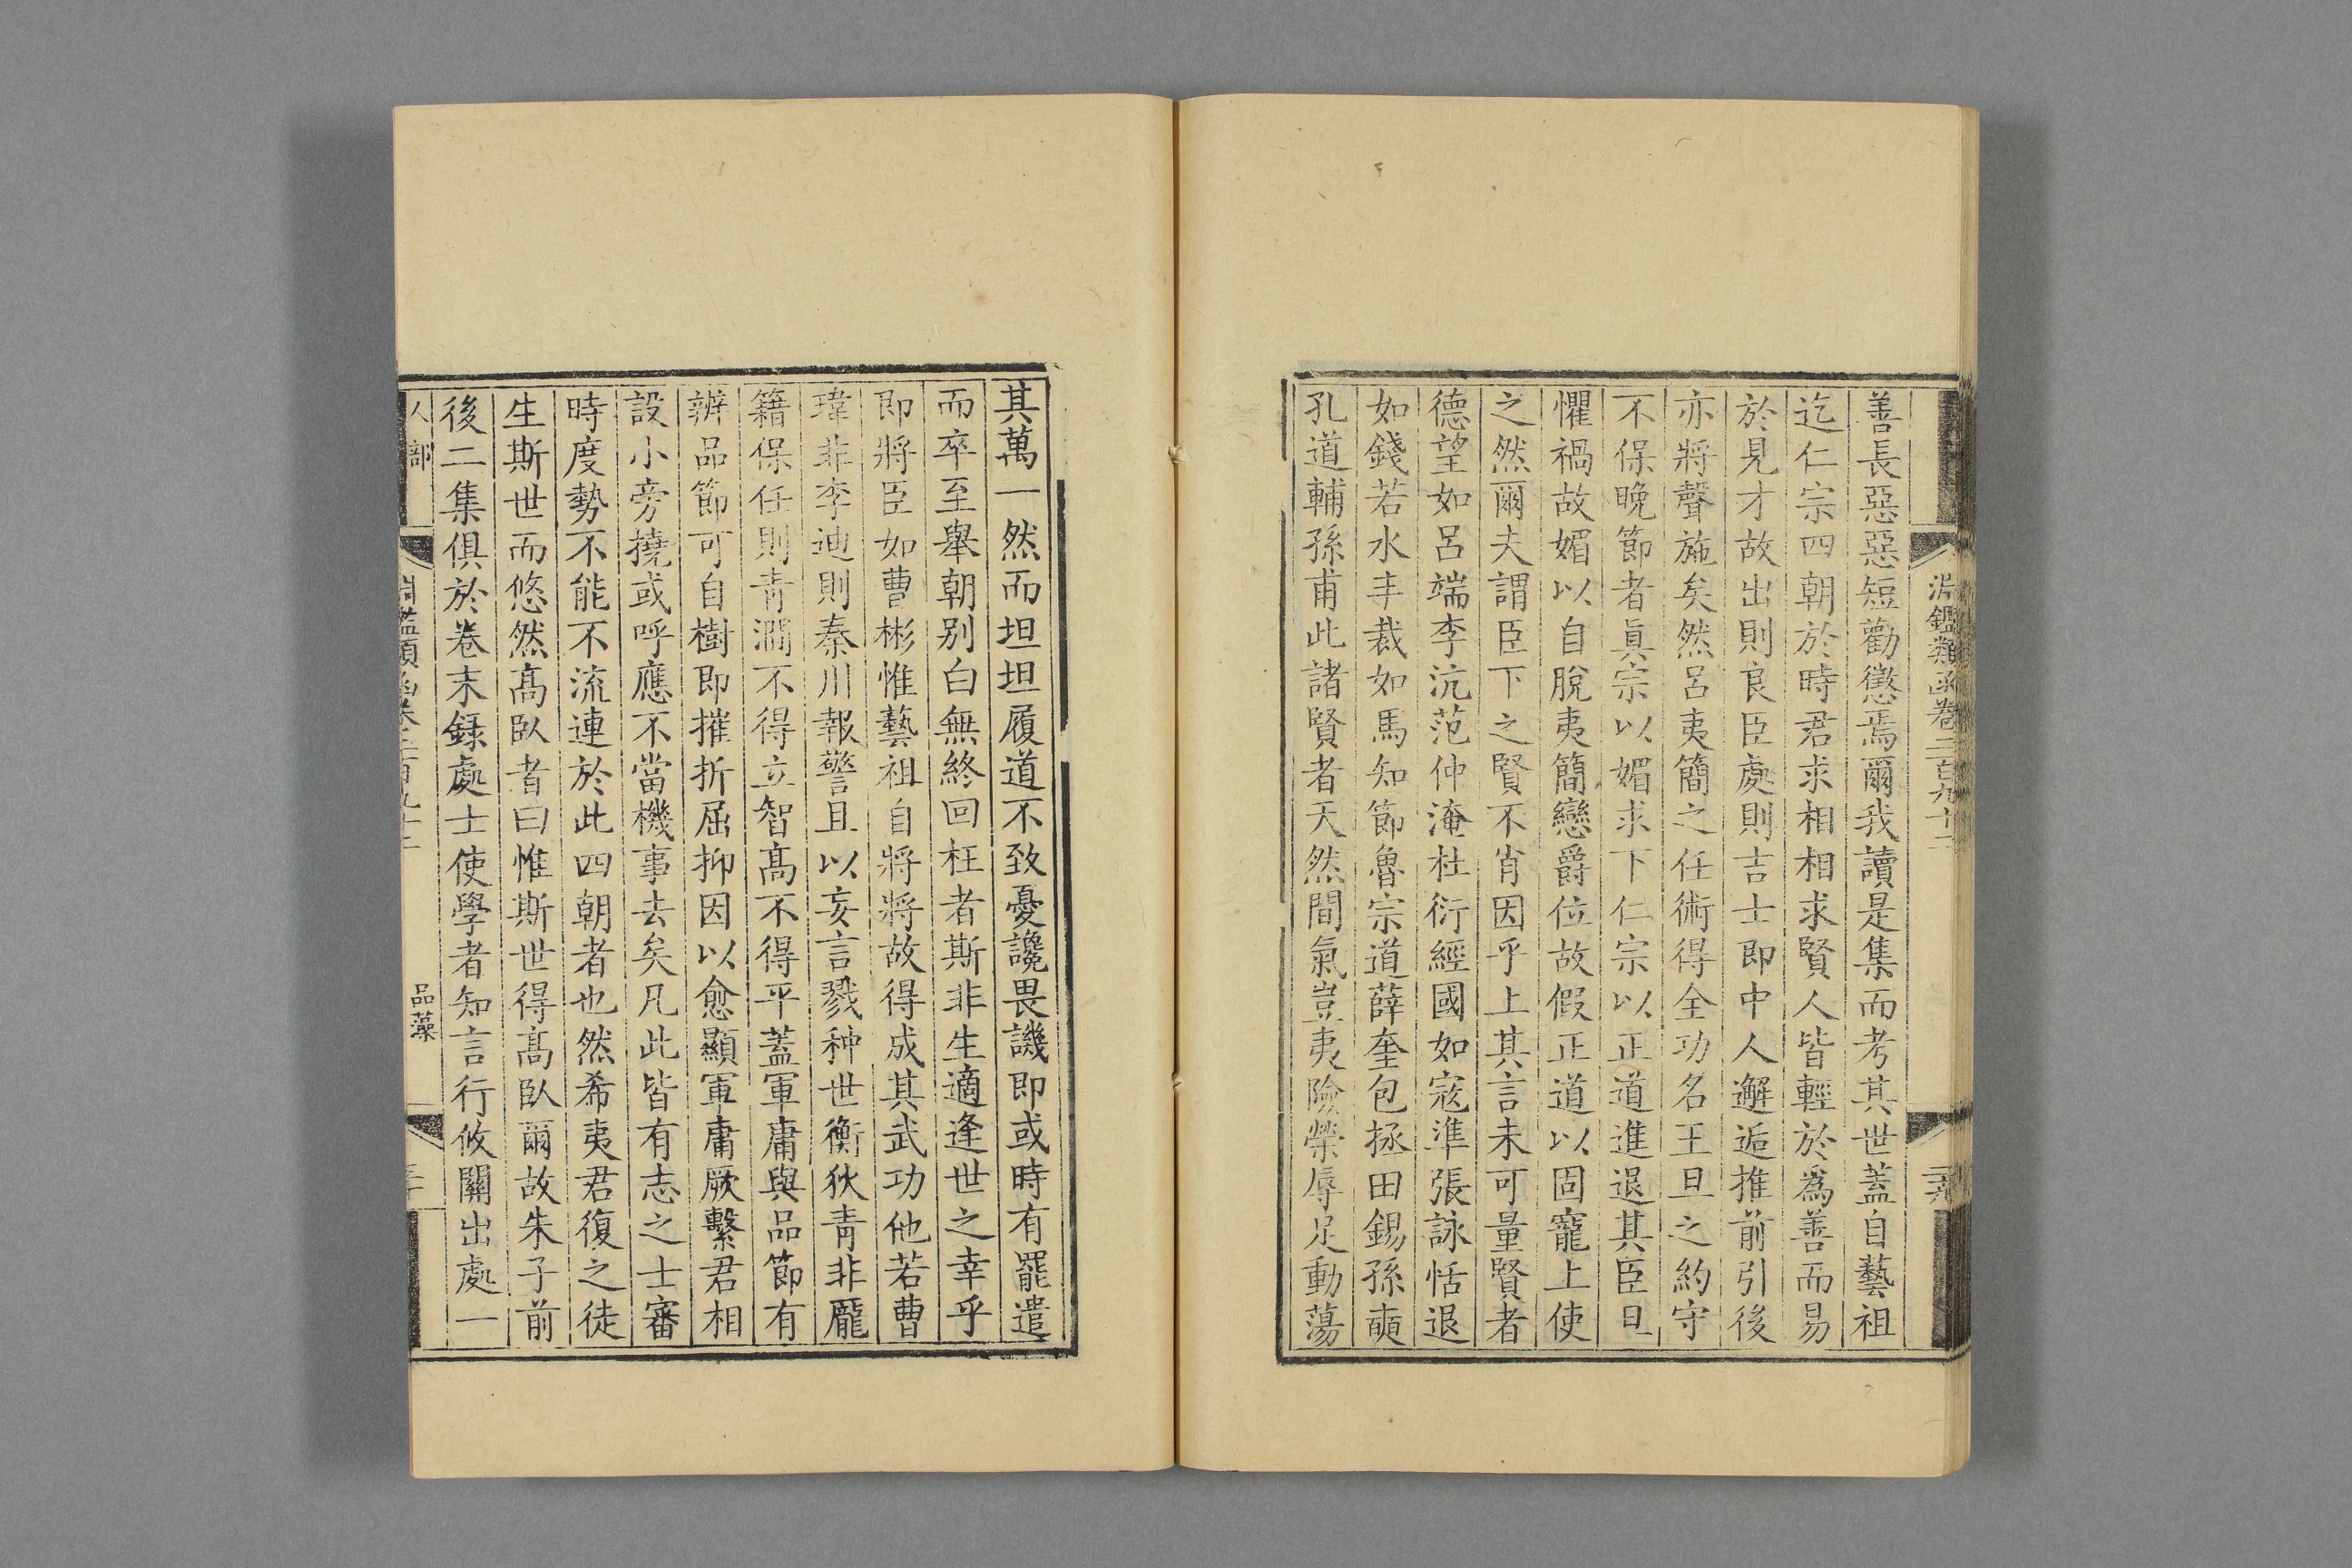 淵鑑類函卷二百九十二
善長惡惡短勸懲焉爾我讀是集而考其世蓋自藝祖
迄仁宗四朝於時君求相相求賢人皆輕於爲善而易
於見才故出則良臣處則吉士即中人邂逅推前引後
亦將聲施矣然呂夷簡之任術得全功名王旦之約守
不保晚節者眞宗以媚求下仁宗以正道進退其臣旦
懼禍故媚以自脫夷簡戀爵位故假正道以固寵上使
之然爾夫謂臣下之賢不肖因乎上其言未可量賢者
德望如呂端李沆范仲淹杜衍經國如寇準張詠恬退
如錢若水丰裁如馬知節魯宗道薛奎包拯田錫孫奭
孔道輔孫甫此諸賢者天然間氣豈夷險榮辱足動蕩
其萬一然而坦坦履道不致憂讒畏譏即或時有罷遣
而卒至舉朝別白無終回枉者斯非生適逢世之幸乎
即將臣如曹彬惟藝祖自將將故得成其武功他若曹
瑋非李迪則秦川報警且以妄言戮种世衡狄青非龐
籍保任則青澗不得立智高不得平蓋軍庸與品節有
辨品節可自樹即摧折屈抑因以愈顯軍庸厥繫君相
設小旁撓或呼應不當機事去矣凡此皆有志之士審
時度勢不能不流連於此四朝者也然希夷君復之徒
生斯世而悠然高臥者曰惟斯世得高臥爾故朱子前
後二集俱於卷末錄處士使學者知言行攸關出處一
人部
品藻